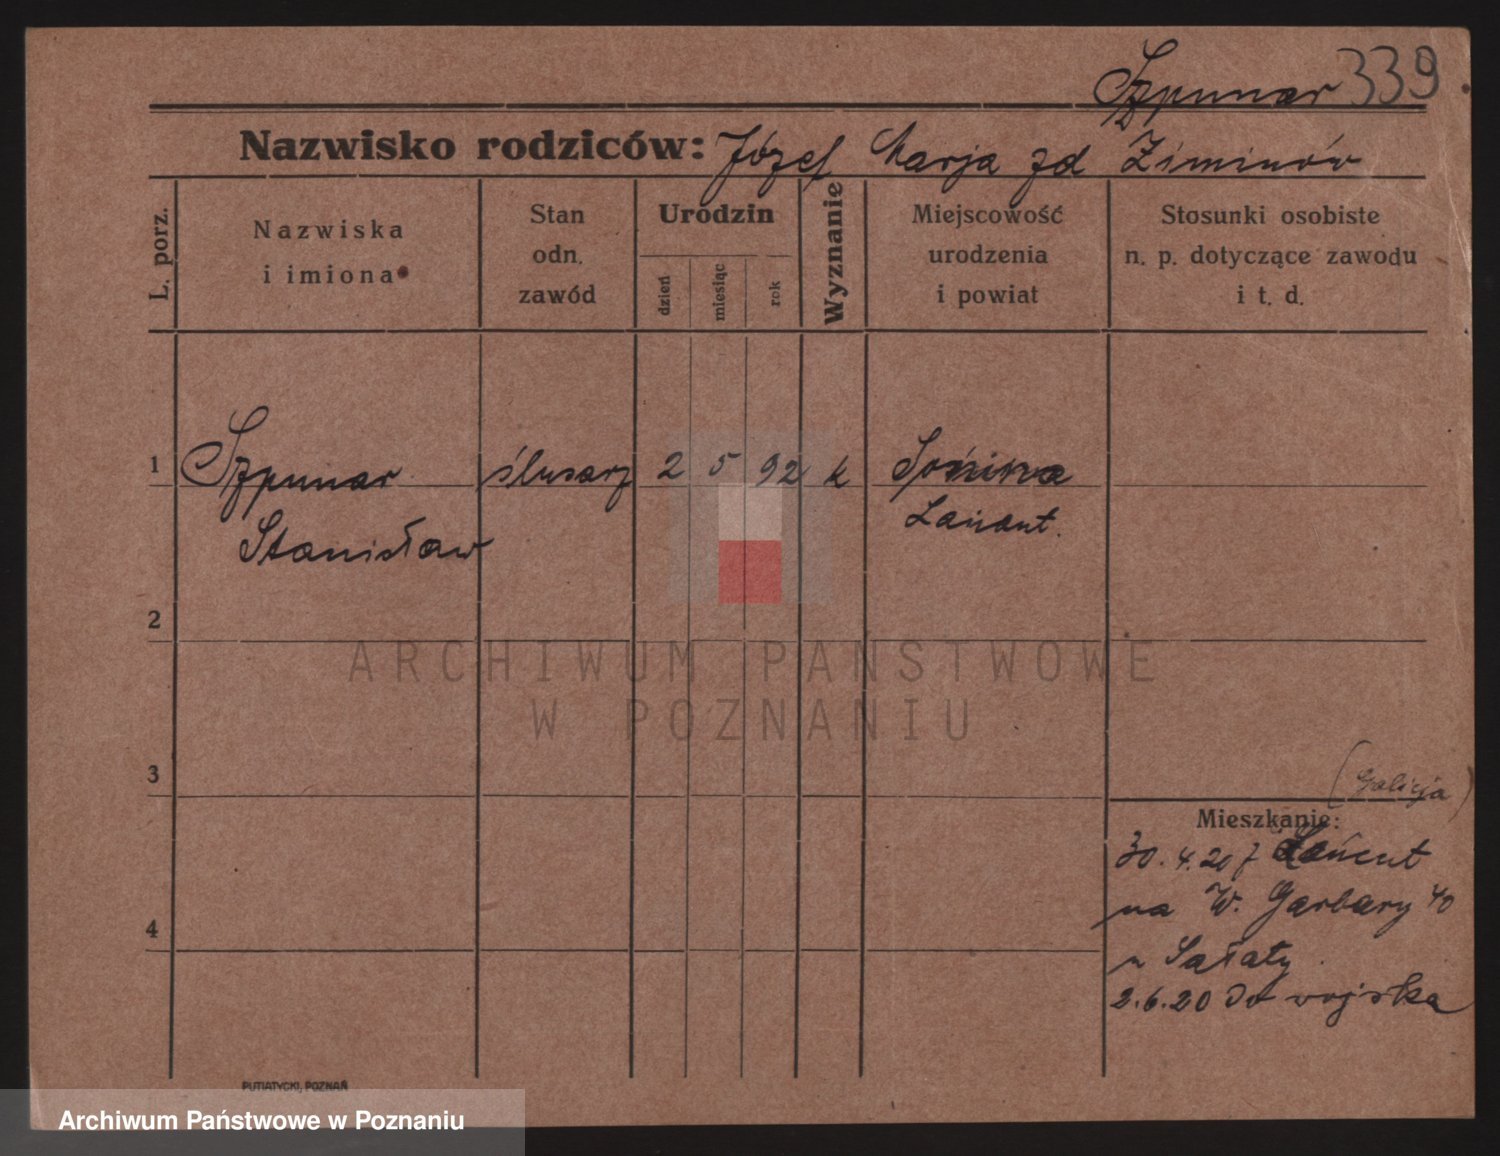 Szpunar 339
Nazwisko rodziców: Józef Marja zd Ziminów
L. porz.
Nazwiska
i imiona
Stan
odn.
zawód
Urodzin
dzień
miesiąc
rok
Wyznanie
Miejscowość
urodzenia
i powiat
Stosunki osobiste
n. p. dotyczące zawodu
i t. d.
1 Szpunar ślusarz 2 5 92 k Sonina
Stanisław Łańcut.
2
ARCHIWUM PAŃSTWOWE
W POZNANIU
3
(Galicja)
Mieszkanie:
30.4.20 z Łańcut
na W. Garbary 40
4
u Sałaty
2.6.20 do wojska
PUTIATYCKI, POZNAŃ
Archiwum Państwowe w Poznaniu